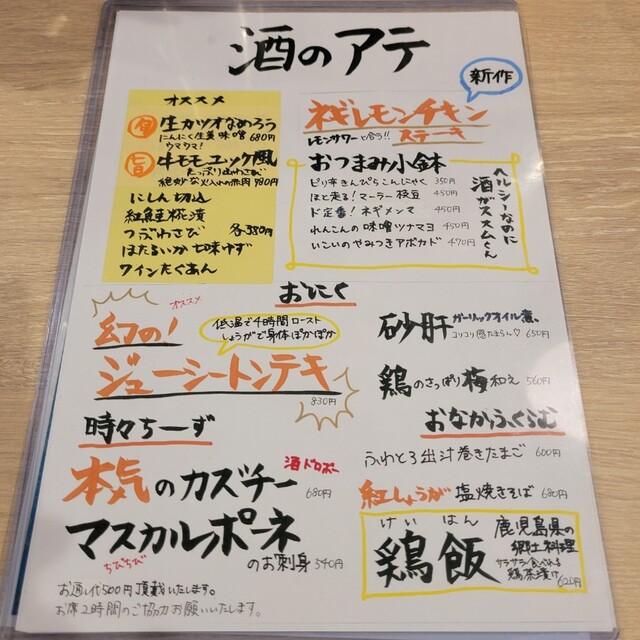 酒のアテ
新作
オススメ
旬 生カツオなめろう
にんにく生姜味噌 680円
ウマウマ!
旨 牛モモユッケ風
たっぷり山わさび
絶妙な火入れの赤肉 980円
にしん切込
紅鮭糀漬
つぶわさび 各380円
ほたるいか七味ゆず
ワインたくあん
ネギレモンチキン
ステーキ
レモンサワーと合う!!
おつまみ小鉢
ピリ辛きんぴらこんにゃく 350円
ほと走る!マーラー枝豆 450円
ド定番!ネギメンマ 450円
れんこんの味噌ツナマヨ 450円
いこいのやみつきアボカド 470円
ヘルシーなのに
酒がススムくん
おにく
オススメ
幻の!
低温で4時間ロースト
しょうがで身体ぽかぽか
ジューシートンテキ
830円
砂肝 ガーリックオイル煮
コリコリ感たまらん♡ 650円
鶏のさっぱり梅和え 560円
時々ちーず
本気のカズチー
酒ドロボー
680円
マスカルポーネ
ちびちび
のお刺身 540円
おなかふくらむ
ふわとろ出汁巻きたまご 600円
紅しょうが塩焼きそば 680円
けいはん
鶏飯
鹿児島県の
郷土料理
サラサラ食べれる
鶏茶漬け 620円
お通し代500円頂戴いたします。
お席2時間のご協力お願いいたします。